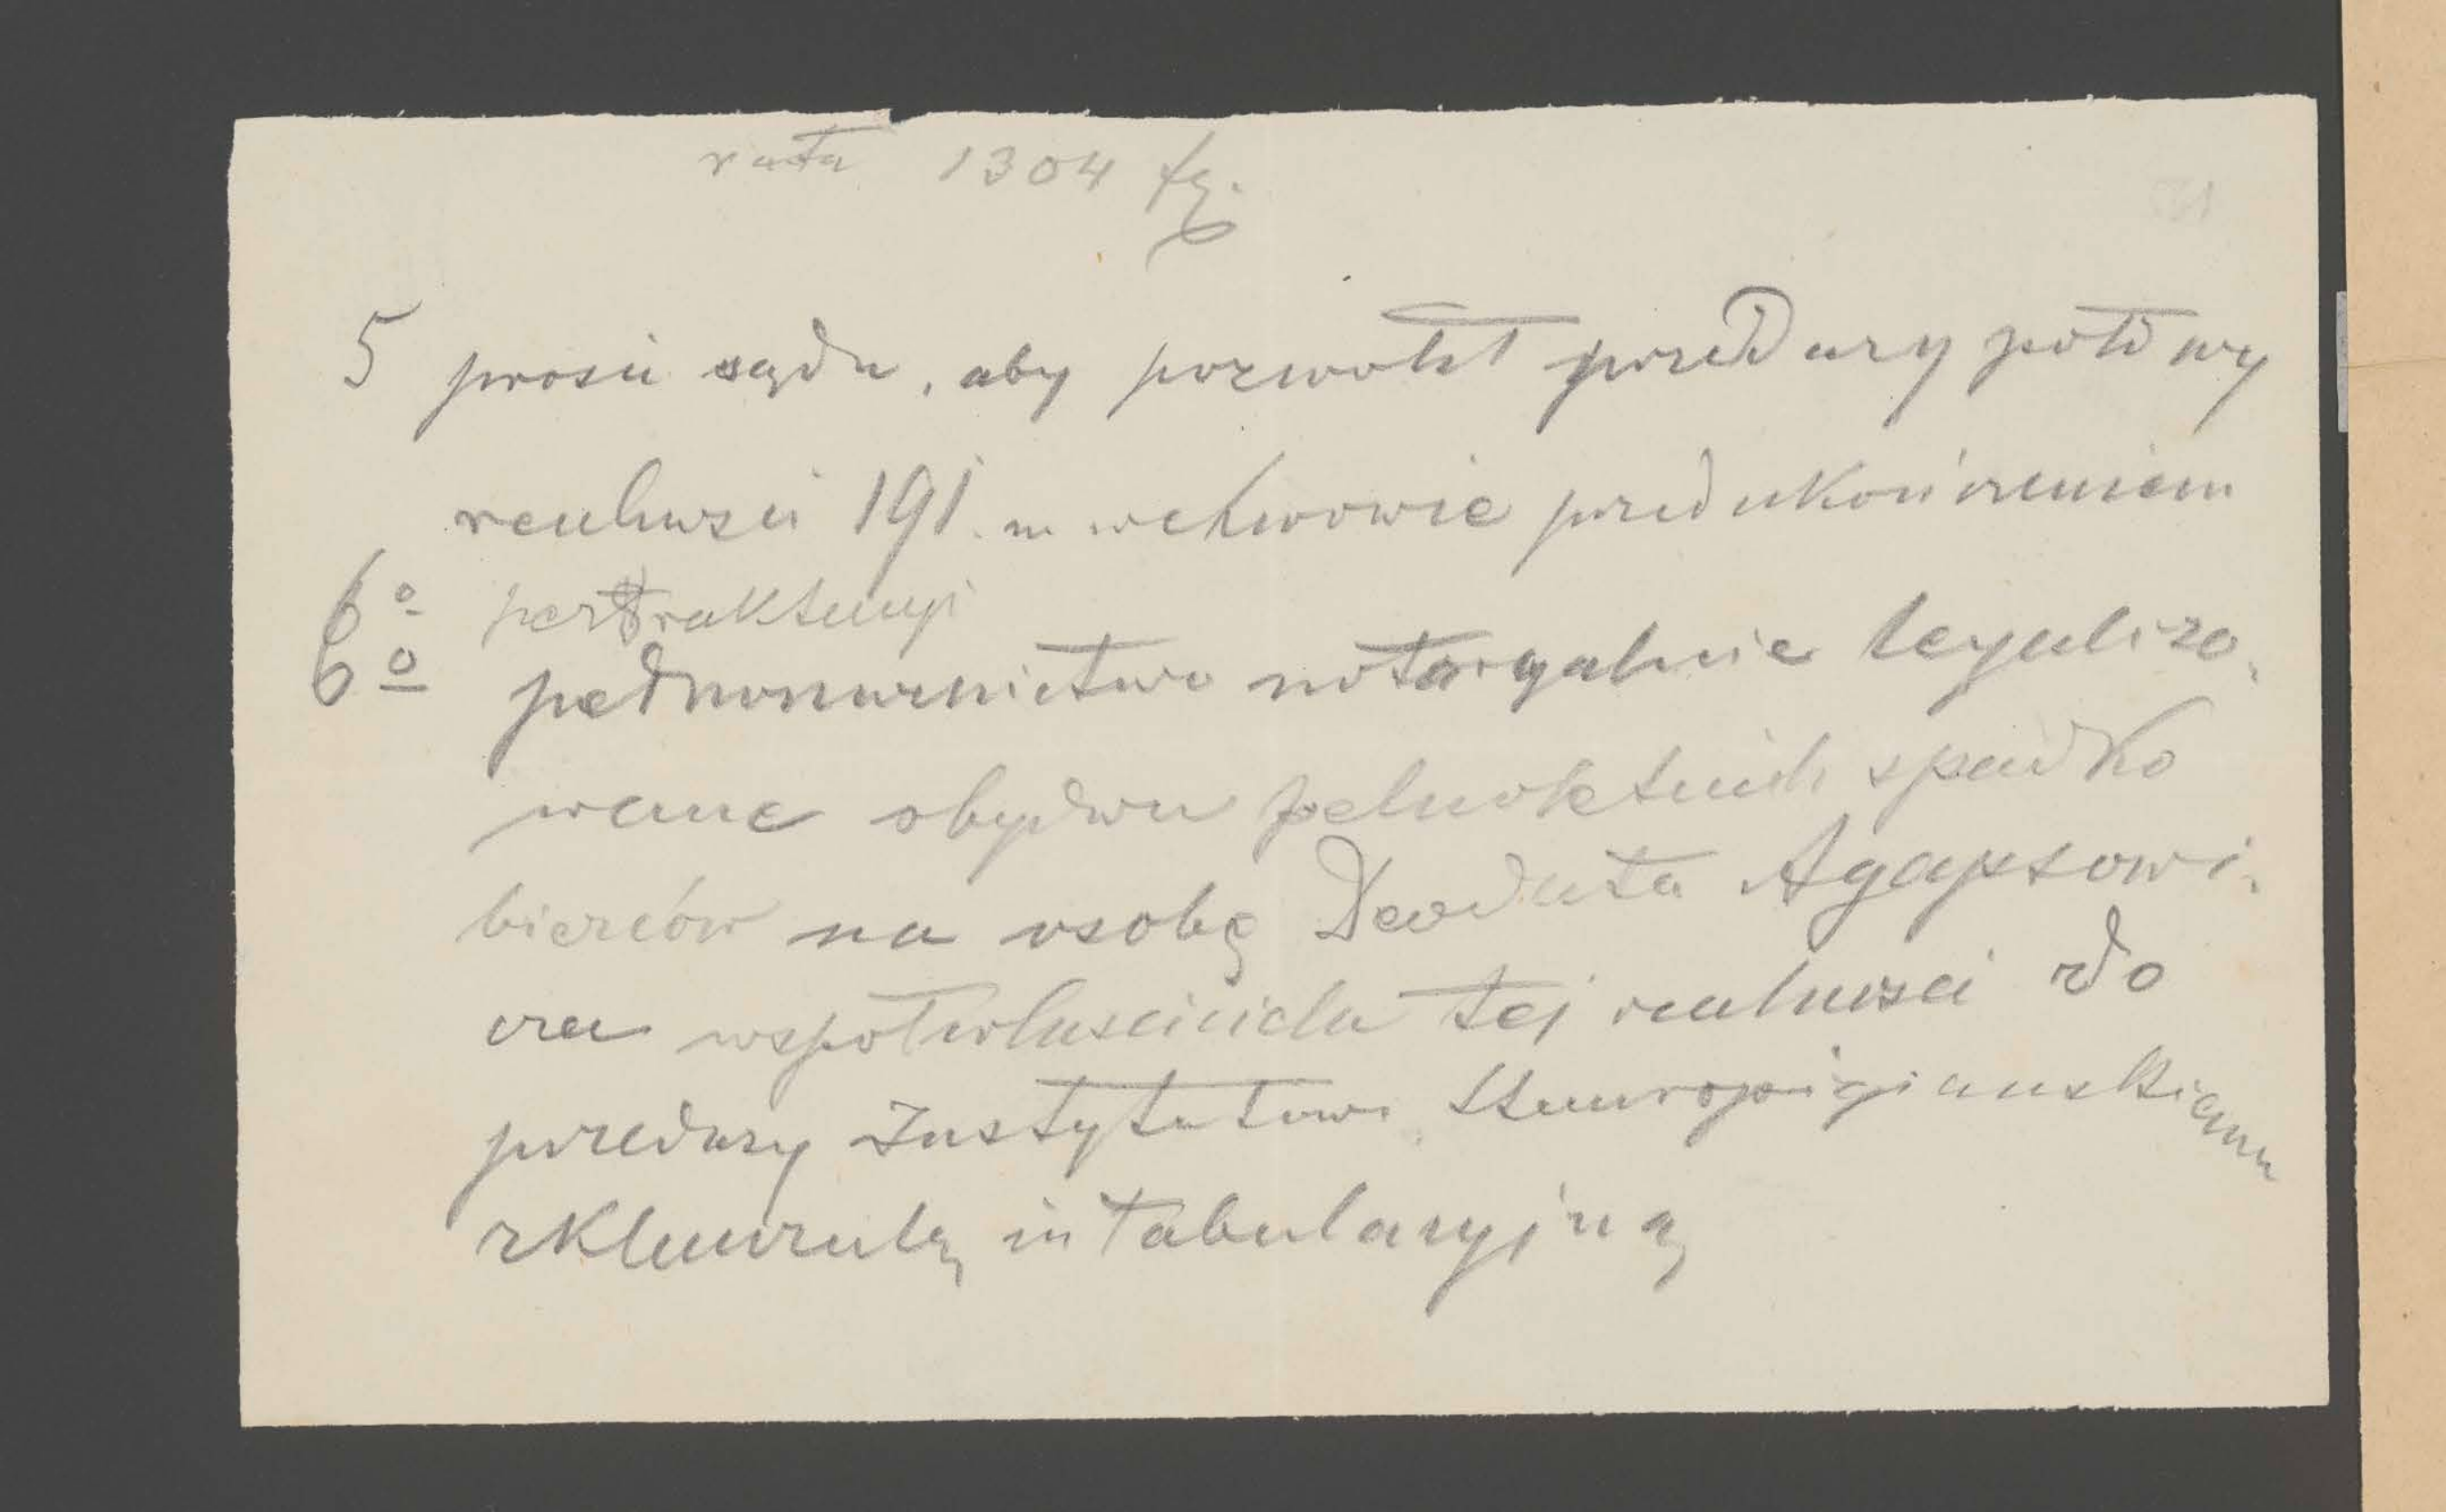 rata 1304 fl.
5 prosić sądu, aby pozwolił sprzedarzy połowy
realności 191. m. we Lwowie przed ukończeniem
6º pertraktacyi
6º pełnomocnictwo notaryalnie legalizo-
wane obydwu pełnoletnich spadko
bierców na osobę Deodata Agapsowi-
cza współwłaściciela tej realności do
sprzedarzy Instytutowi Stauropigiańskiemu
z klauzulą intabulacyjną